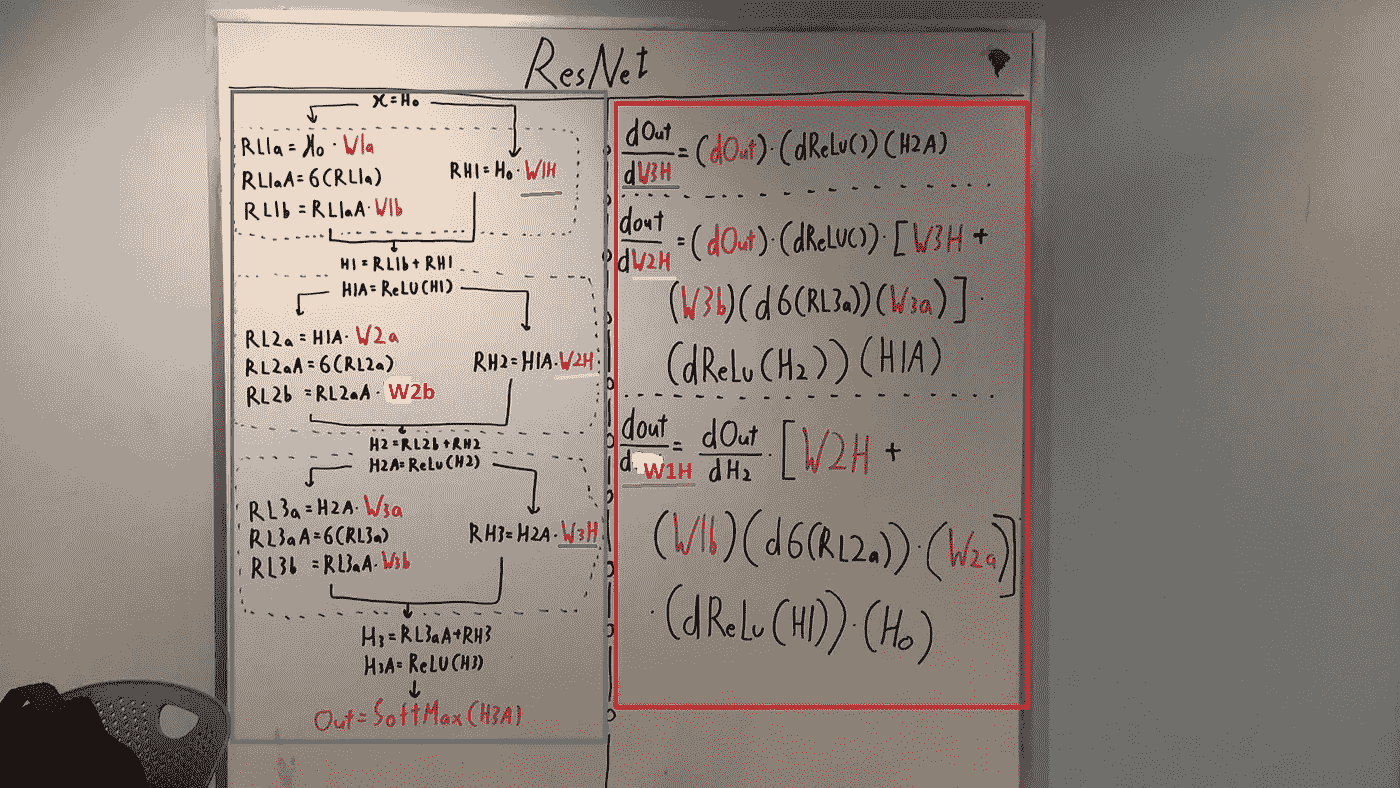 ResNet
x=H₀
RL1a = H₀ · W1a
RL1aA=6(RL1a)
RL1b = RL1aA·W1b
RH1=H₀·W1H
H1=RL1b+RH1
H1A=ReLU(H1)
RL2a=H1A·W2a
RL2aA=6(RL2a)
RL2b =RL2aA· W2b
RH2=H1A·W2H
H2=RL2b+RH2
H2A=ReLu(H2)
RL3a=H2A·W3a
RL3aA=6(RL3a)
RL3b =RL3aA·W3b
RH3=H2A·W3H
H₃=RL3aA+RH3
H3A=ReLU(H3)
Out=SoftMax(H3A)
dOut
dW3H
=(dOut)·(dReLu())(H2A)
dout
dW2H
=(dOut)·(dReLU())·[W3H +
(W3b)(d6(RL3a))(W3a)]·
(dReLu(H₂))(H1A)
dout
d W1H
=
dOut
dH₂
·[W2H +
(W1b)(d6(RL2a))·(W2a)]
·(dReLu(H1))·(H₀)